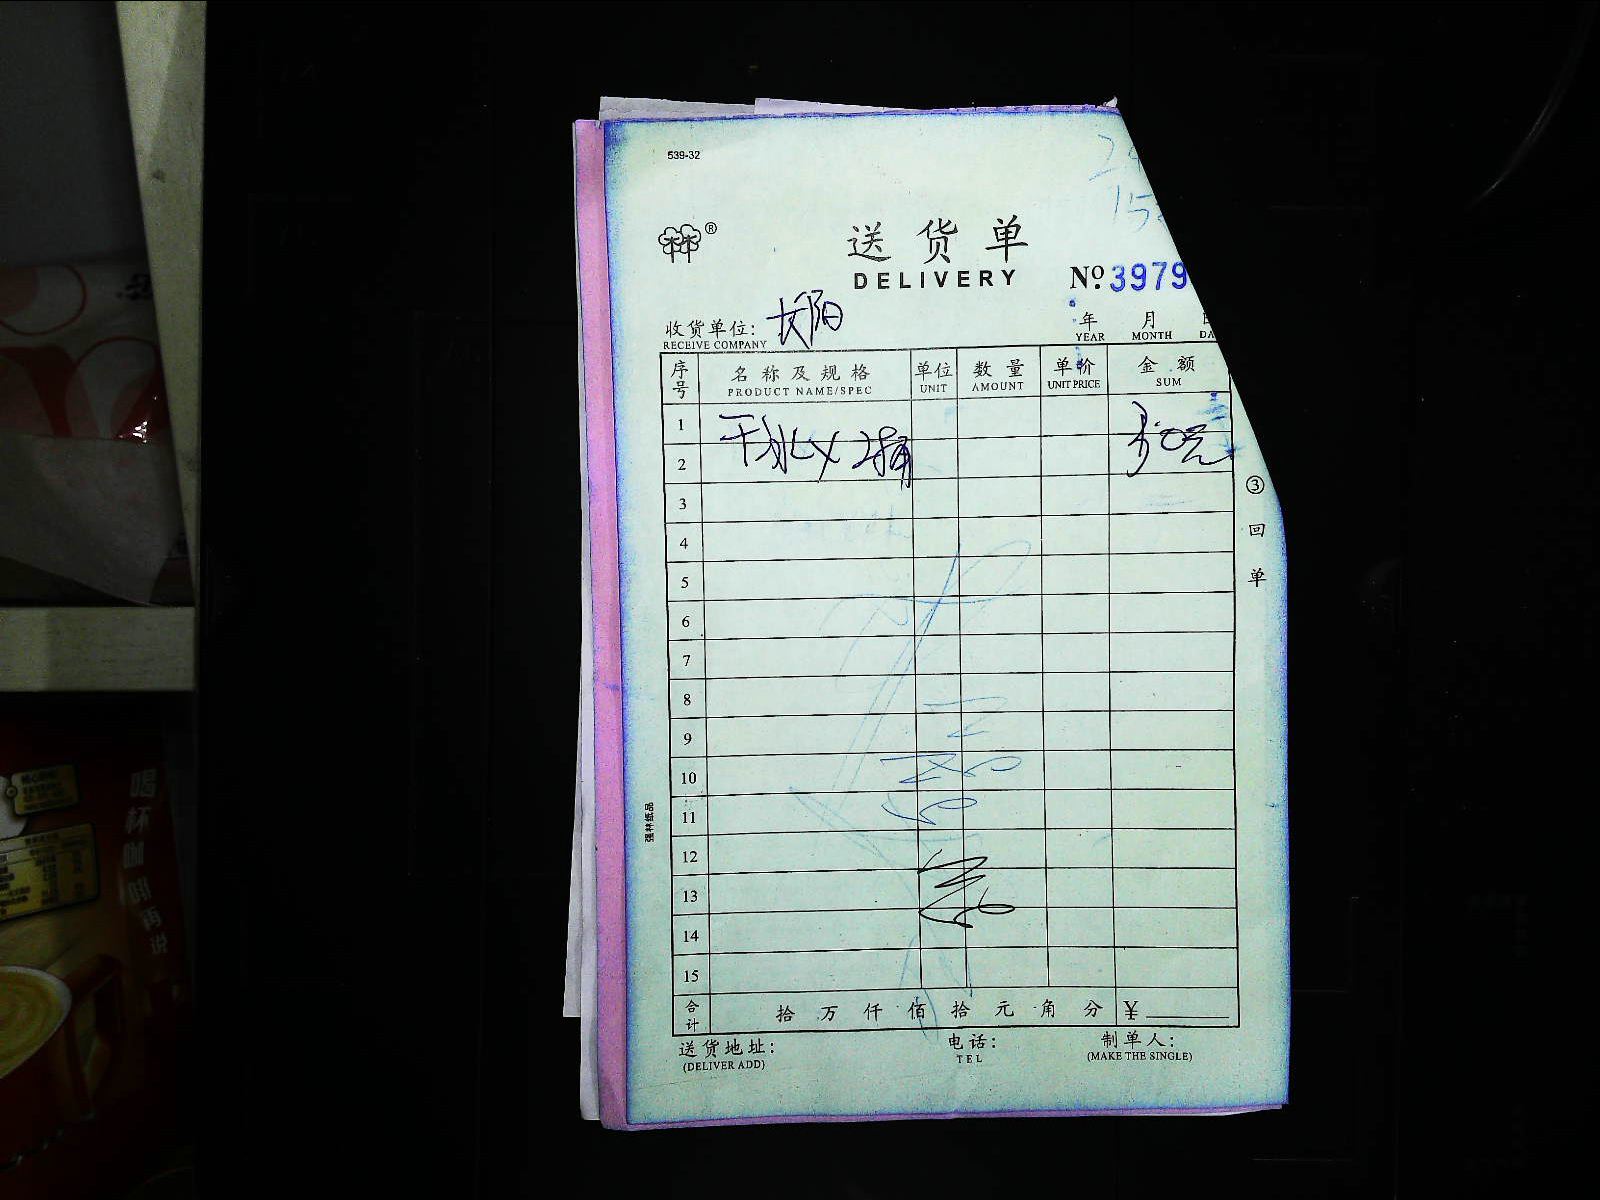 539-32
®
送货单
DELIVERY
№ 3979
收货单位:
RECEIVE COMPANY
年 月
YEAR MONTH DA
序号 名称及规格 单位 数量 单价 金额
PRODUCT NAME/SPEC UNIT AMOUNT UNIT PRICE SUM
1
干冰x2桶
2
3
4
5
6
7
8
9
10
11
12
13
14
15
③回单
强林纸品
合计 拾万仟佰拾元角分 ¥
送货地址: 电话: 制单人:
(DELIVER ADD) TEL (MAKE THE SINGLE)
喝杯咖啡再说